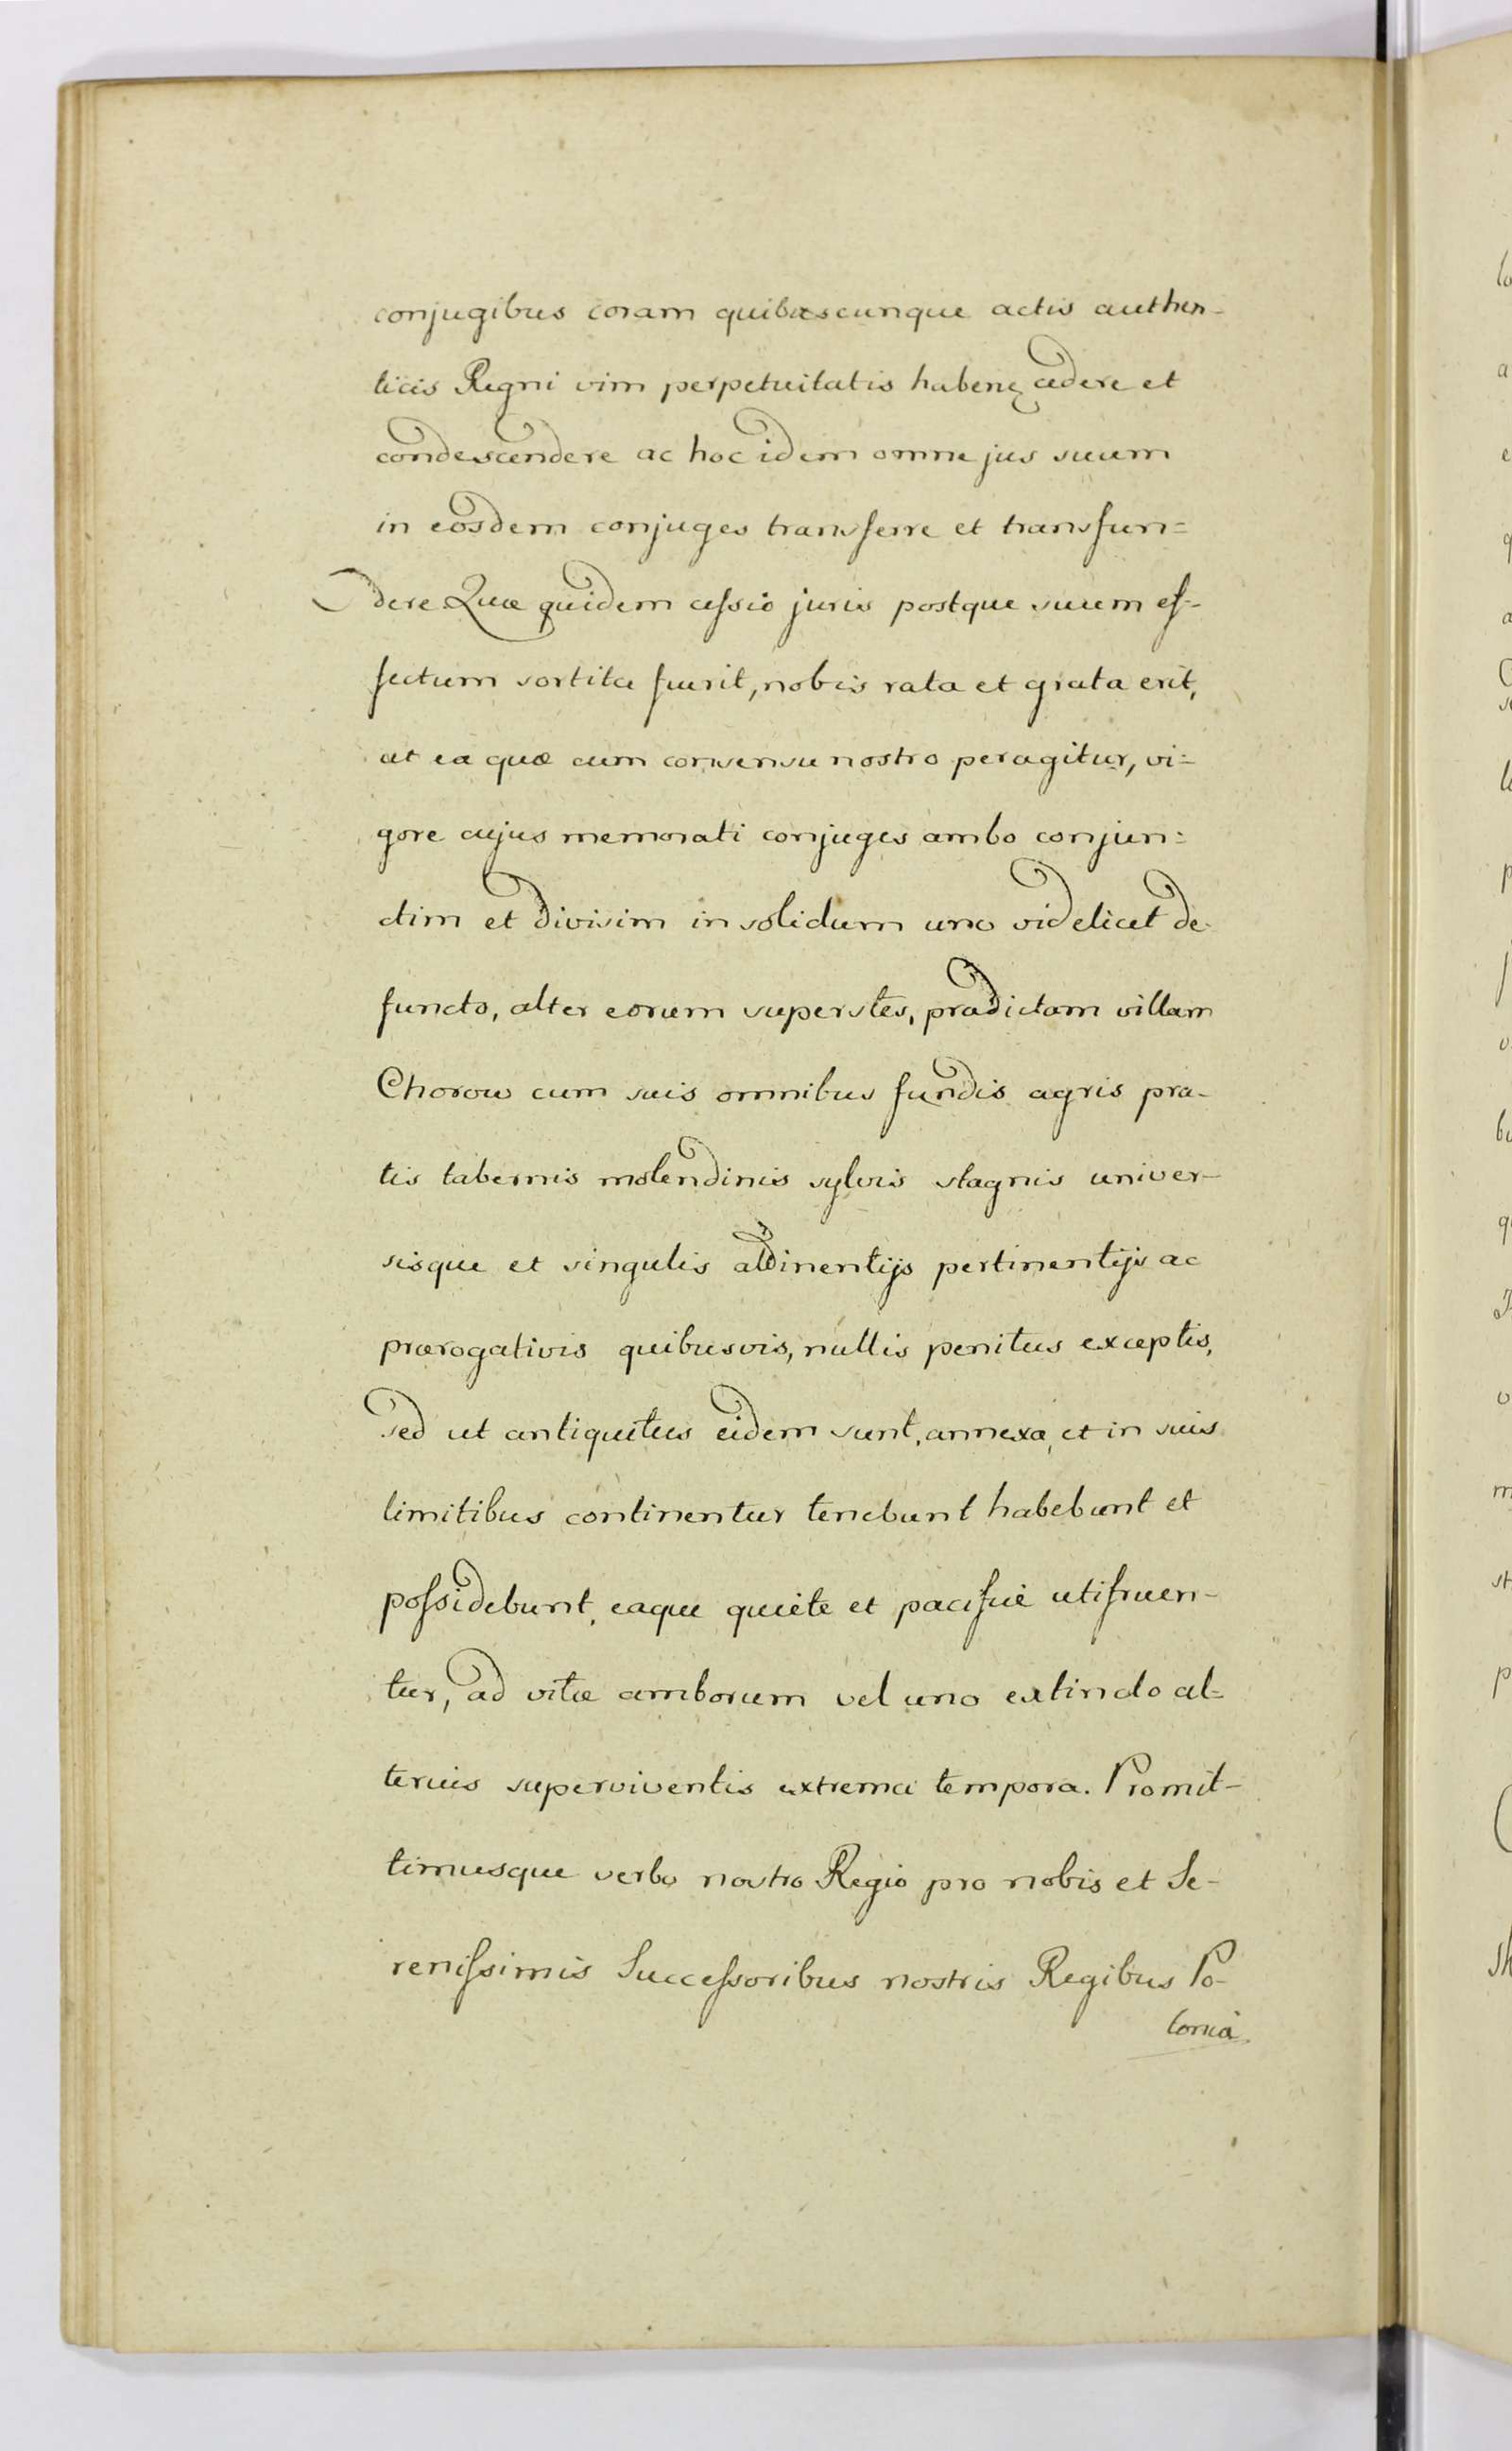 conjugibus coram quibuscunque actis authen-
ticis Regni vim perpetuitatis haben; cedere et
condescendere ac hoc idem omne jus suum
in eosdem conjuges transferre et transfun=
dere Quæ quidem cessio juris postque suum ef-
fectum sortita fuerit, nobis rata et grata erit,
ut ea quæ cum consensu nostro peragitur, vi=
gore cujus memorati conjuges ambo conjun=
ctim et divisim in solidum uno videlicet de-
functo, alter eorum superstes, prædictam villam
Chorow cum suis omnibus fundis agris pra-
tis tabernis molendinis sylvis stagnis univer-
sisque et singulis attinentijs pertinentijs ac
prærogativis quibusvis, nullis penitus exceptis,
sed ut antiquitus eidem sunt, annexa, et in suis
limitibus continentur tenebunt habebunt et
possidebunt, eaque quiete et pacifice utifruen-
tur, ad vitæ amborum vel uno extincto al=
terius superviventis extrema tempora. Promit-
timusque verbo nostro Regio pro nobis et Se-
renissimis Successoribus nostris Regibus Po-
loniæ